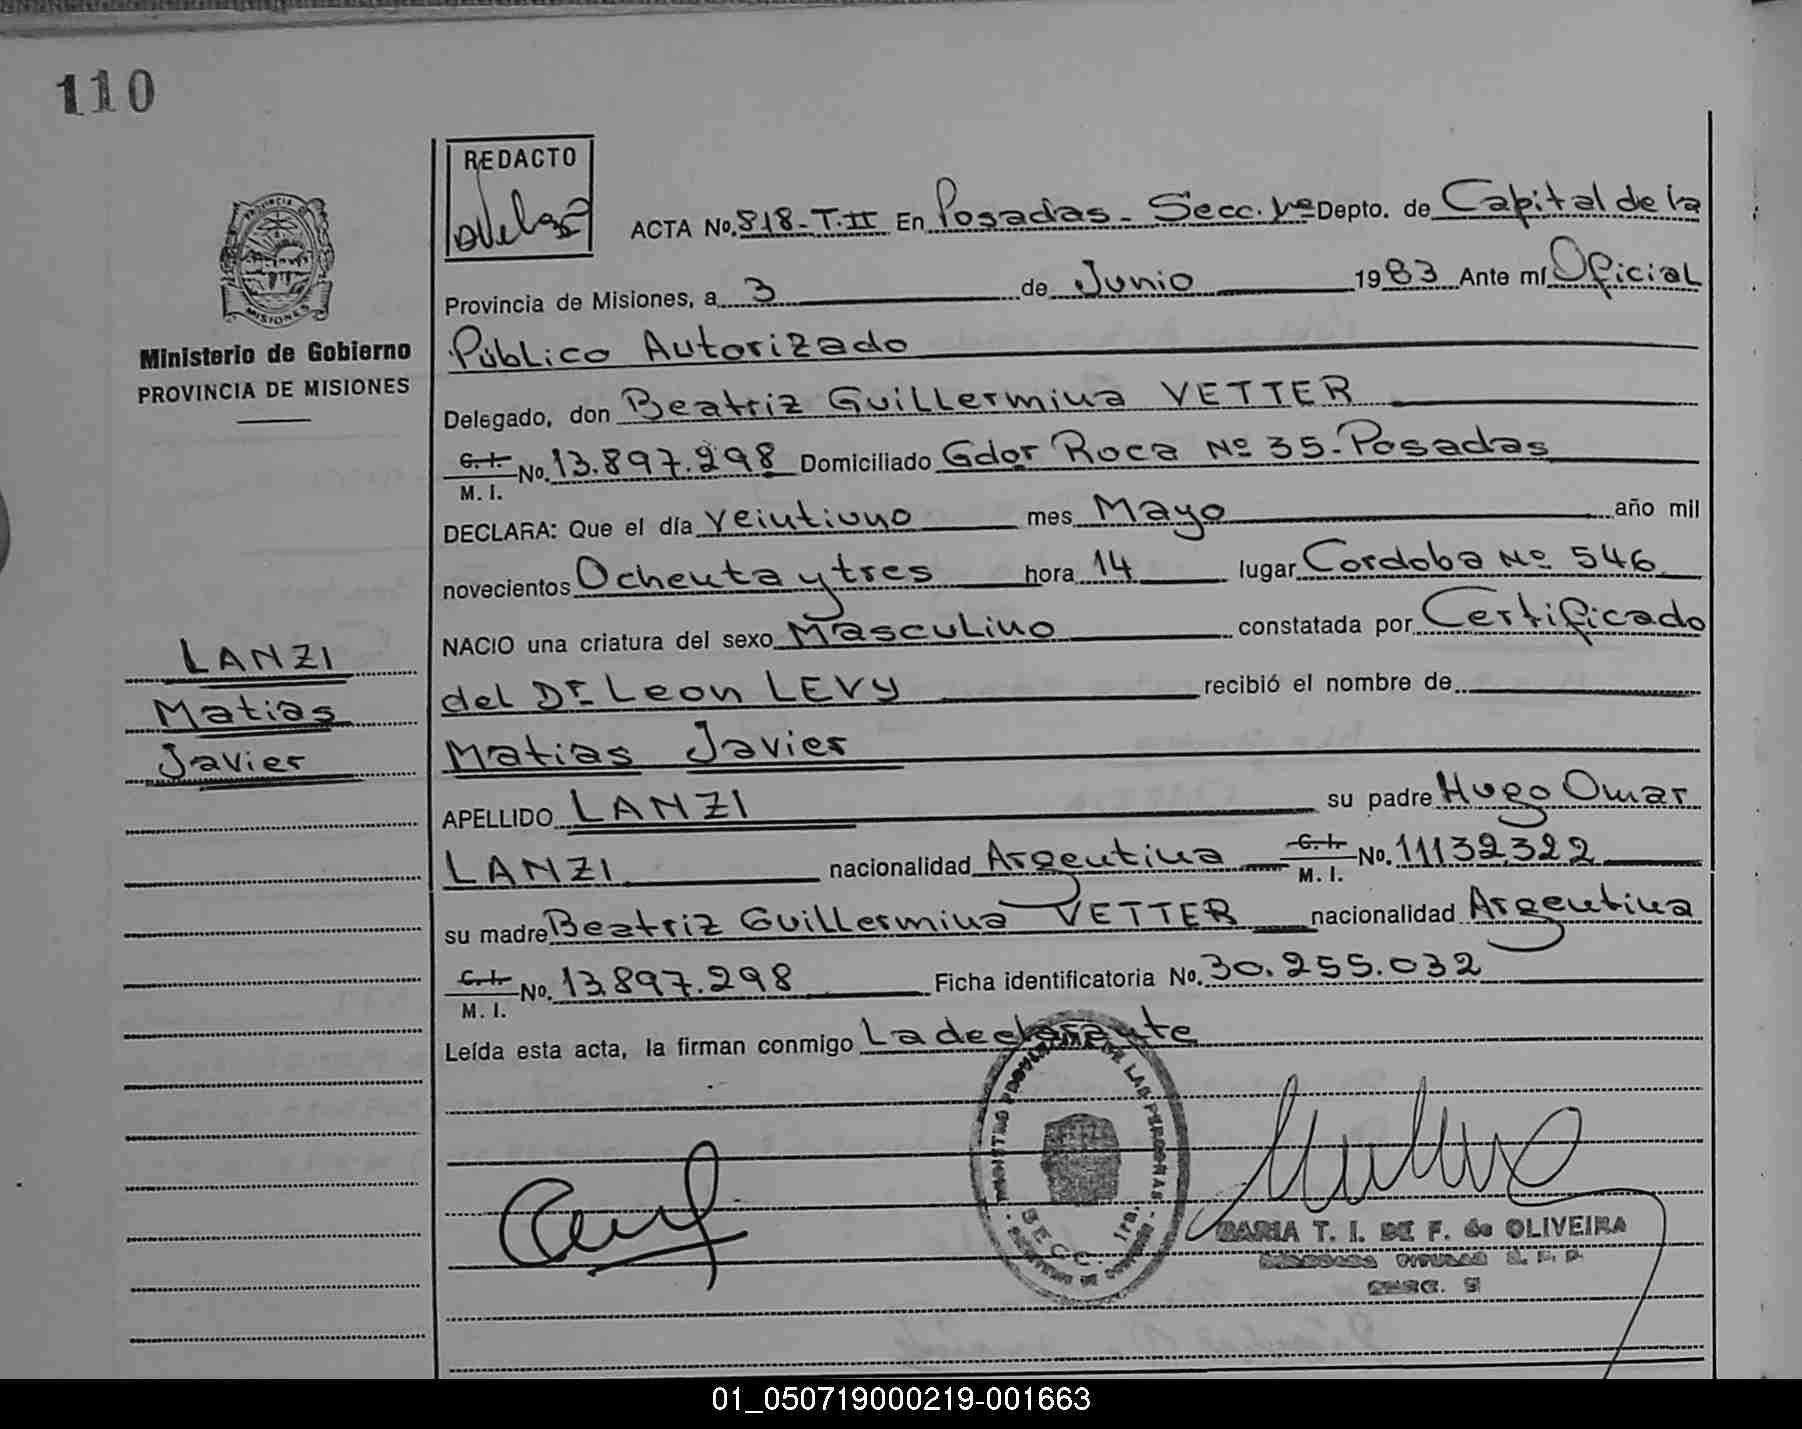 110
REDACTO
ACTA No. 818-T.II En Posadas - Secc. 1ª Depto. de Capital de la
Provincia de Misiones, a 3 de Junio 1983 Ante mí Oficial
Público Autorizado
Ministerio de Gobierno
PROVINCIA DE MISIONES
Delegado, don Beatriz Guillermina VETTER
C.I. M.I. No. 13.897.298 Domiciliado Gdor Roca Nº 35-Posadas
DECLARA: Que el día veintiuno mes Mayo año mil
novecientos Ochenta y tres hora 14 lugar Cordoba Nº 546
NACIO una criatura del sexo Masculino constatada por Certificado
del Dr Leon LEVY recibió el nombre de
Matias Javier
LANZI
Matias
Javier
APELLIDO LANZI su padre Hugo Omar
LANZI nacionalidad Argentina C.I. M.I. No. 11132322
su madre Beatriz Guillermina VETTER nacionalidad Argentina
C.I. M.I. No. 13.897.298 Ficha identificatoria No. 30.255.032
Leída esta acta, la firman conmigo La declarante
DE LAS PERSONAS
SECC. 1ra.
MARIA T. I. DE F. de OLIVEIRA
01_050719000219-001663